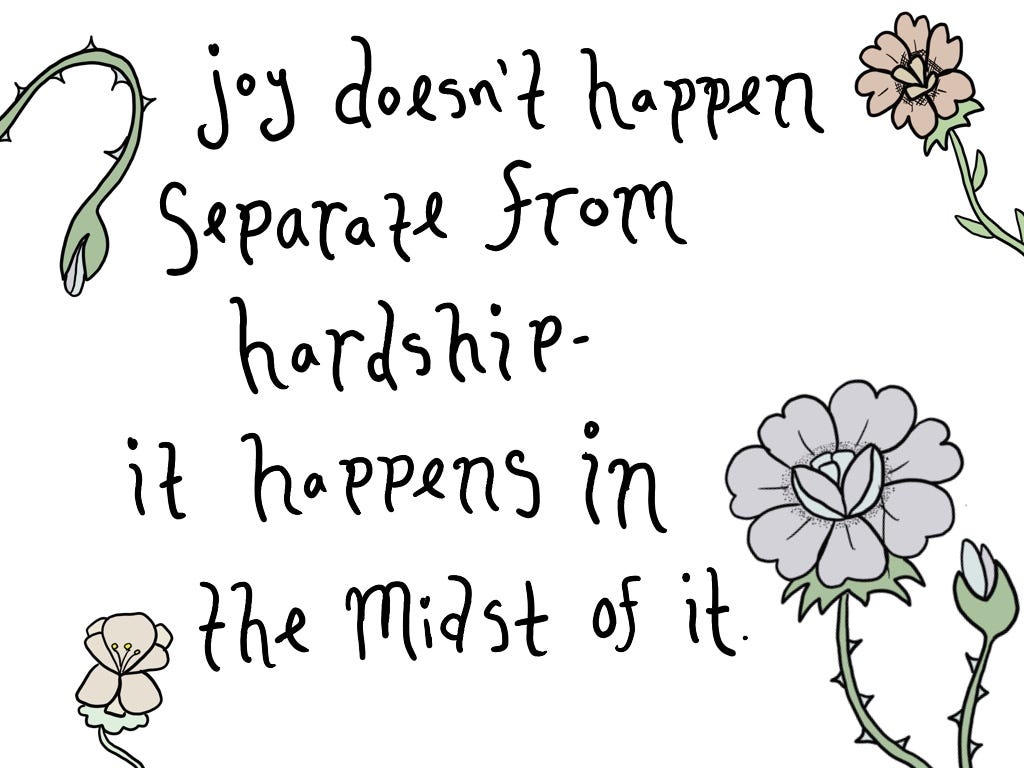 joy doesn't happen
Separate from
hardship-
it happens in
the midst of it.